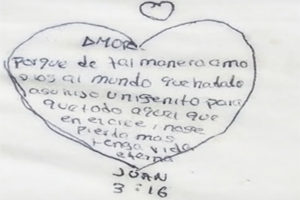 AMOR
porque de tal manera amo
Dios al mundo que hadado
asu hijo unigenito para
que todo aquel que
en el cree, no se
pierda mas
tenga vida
eterna
JUAN
3:16